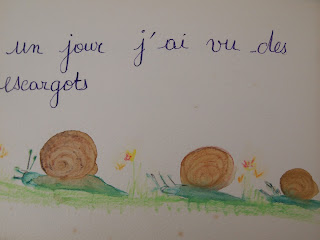 un jour j'ai vu des
escargots